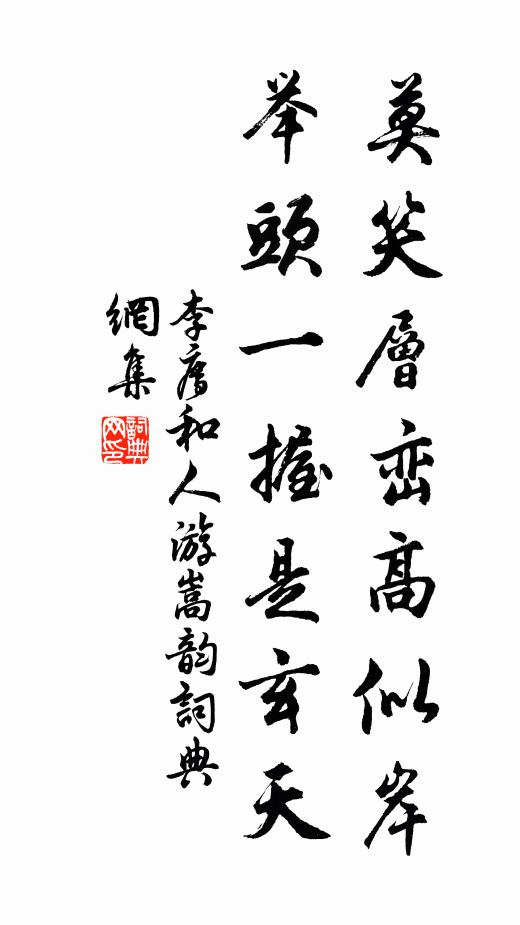 莫笑層峦高似岸
举頭一握是玄天
李廌和人游嵩韵詞典
網集
詞典
网印